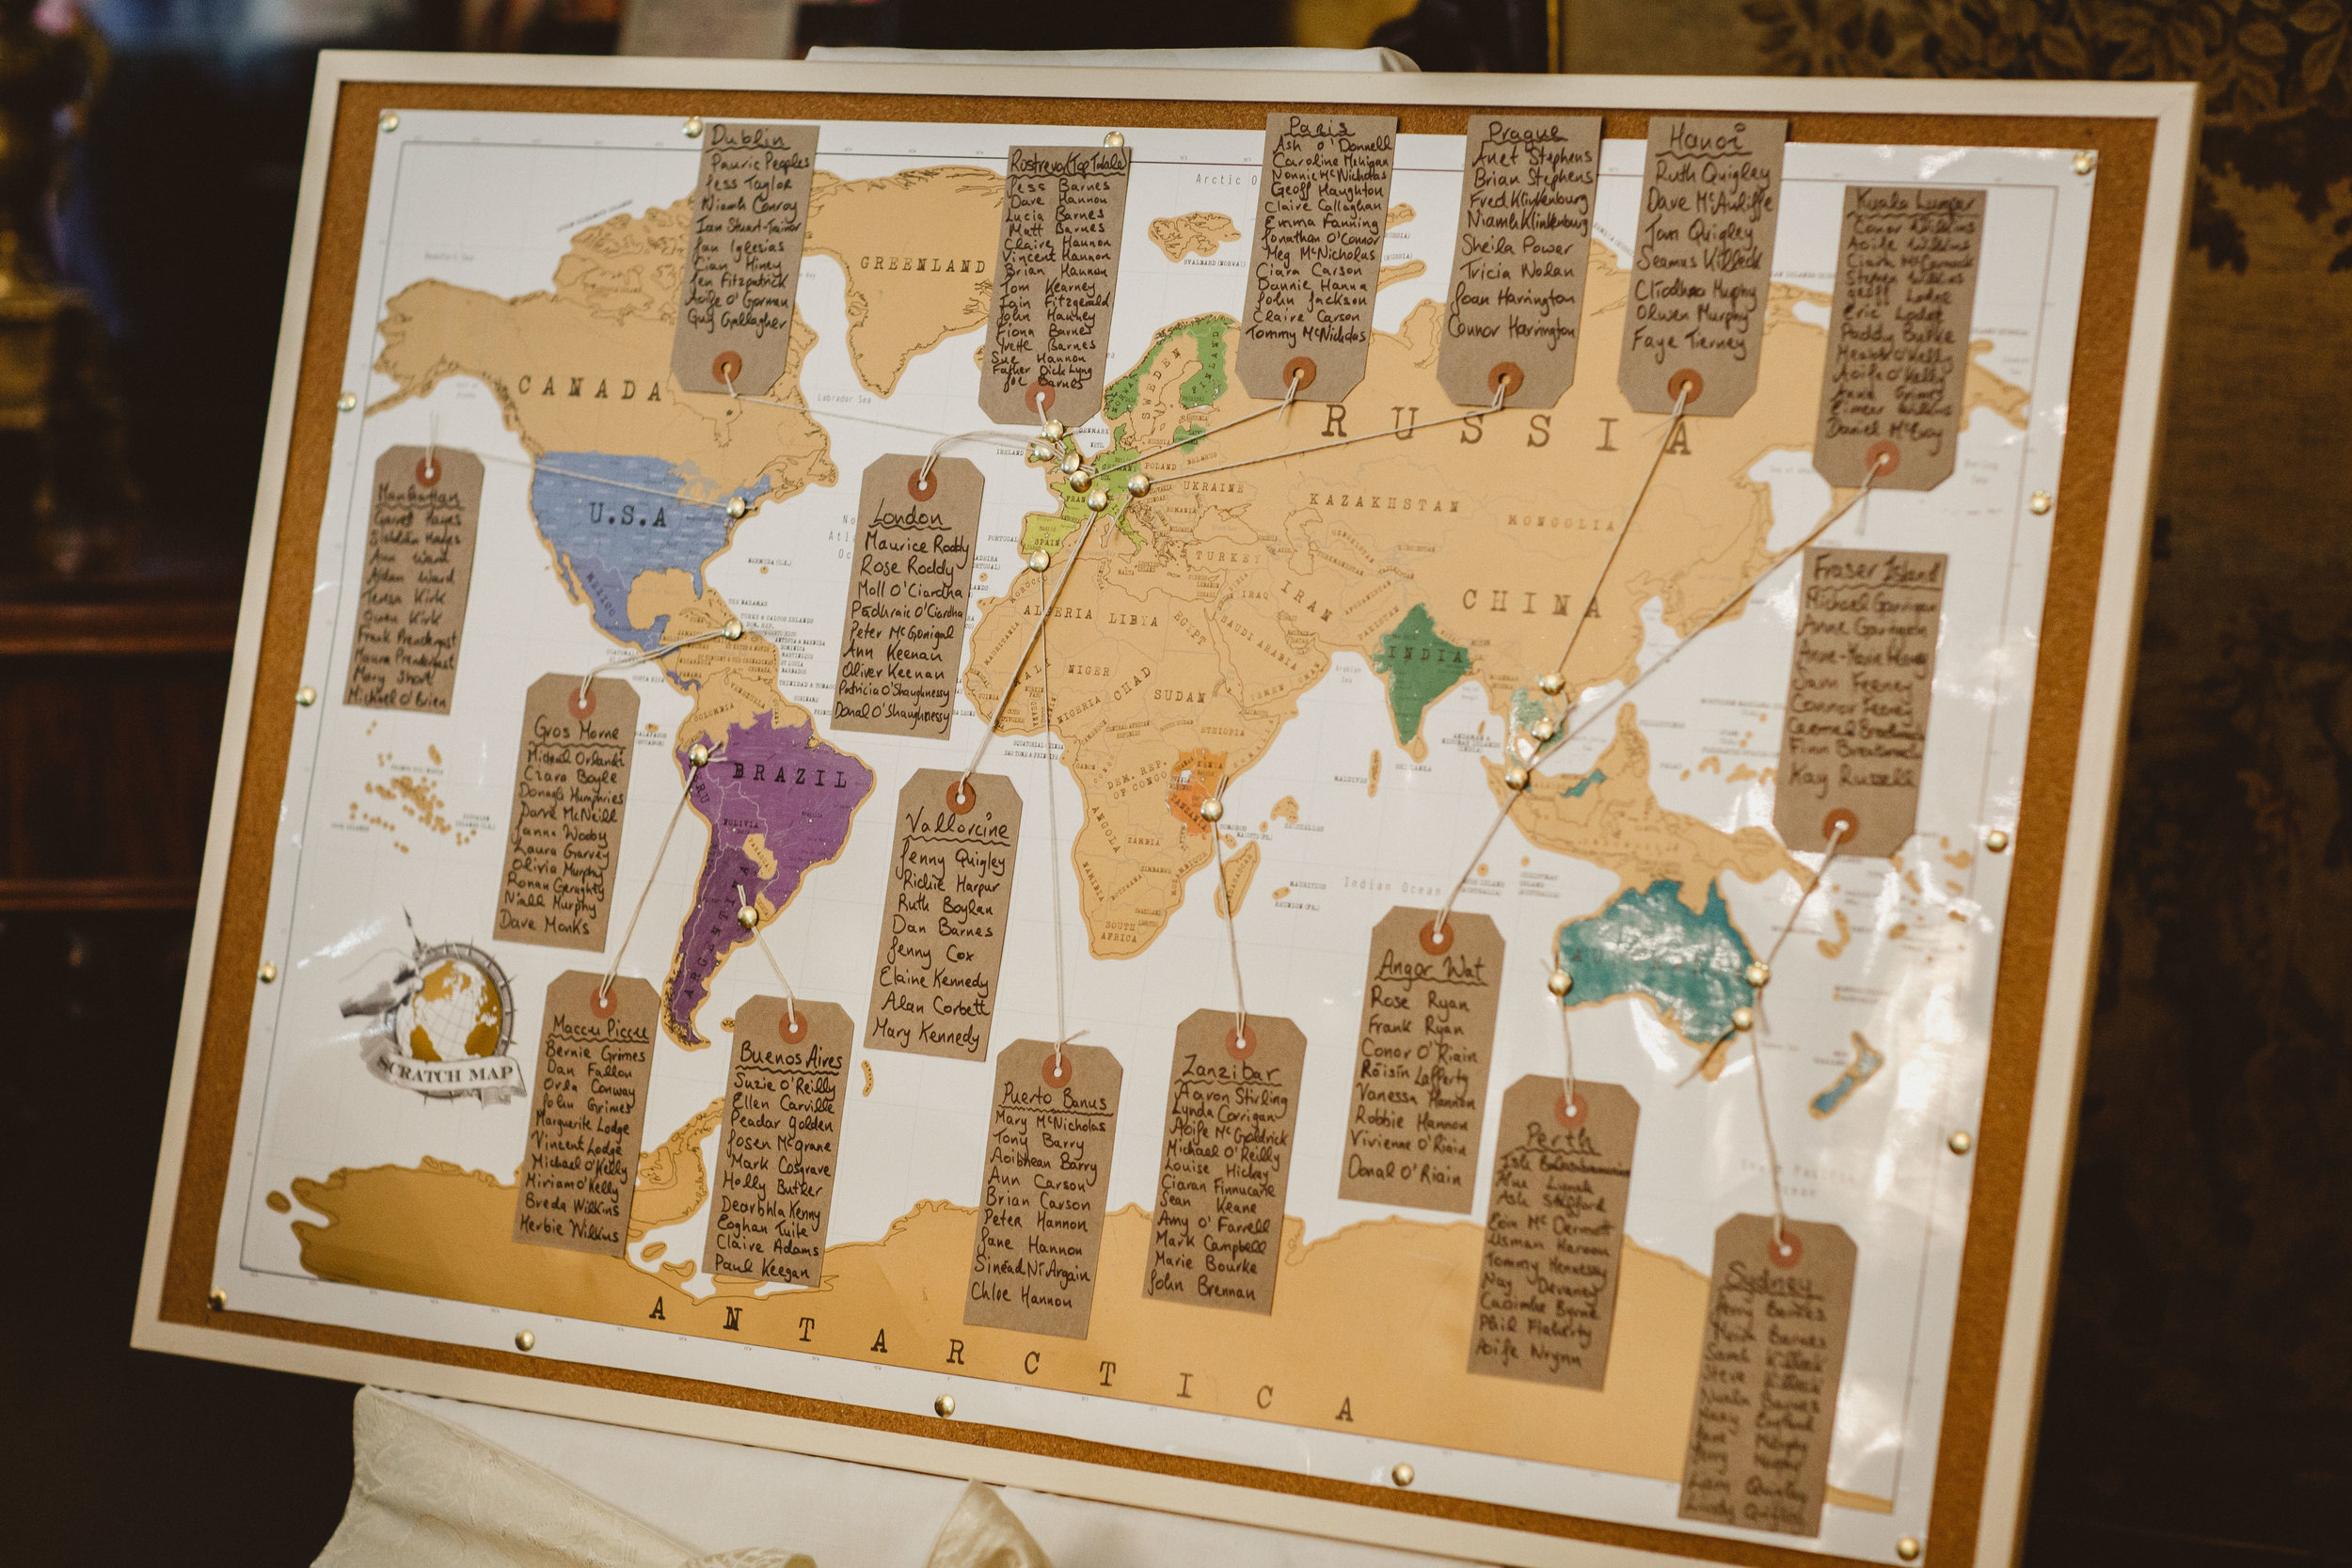 Dublin
Pauric Peoples
Jess Taylor
Niamh Conroy
Ian Stuart-Trainor
Jan Iglesias
Cian Hiney
Jen Fitzpatrick
Aoife O'Gorman
Guy Gallagher
Rostrevor (Top Table)
Jess Barnes
Dave Hannon
Lucia Barnes
Matt Barnes
Claire Hannon
Vincent Hannon
Brian Hannon
Tom Kearney
Iain Fitzgerald
John Hanney
Fiona Barnes
Yvette Barnes
Sue Hannon
Father Dick Lyng
Joe Barnes
Paris
Ash O'Donnell
Caroline Mehigan
Nonnie McNicholas
Geoff Haughton
Claire Callaghan
Emma Fanning
Jonathan O'Connor
Meg McNicholas
Ciara Carson
Dannie Hanna
John Jackson
Claire Carson
Tommy McNicholas
Prague
Anet Stephens
Brian Stephens
Fred Klinkenburg
Niamh Klinkenburg
Sheila Power
Tricia Nolan
Joan Harrington
Connor Harrington
Hanoi
Ruth Quigley
Dave McAuliffe
Tom Quigley
Seamus Killock
Clíodhna Murphy
Olwen Murphy
Faye Tierney
Kuala Lumpar
Conor Wilkins
Aoife Wilkins
Ciara McCormack
Stephen Wilkins
Geoff Lodge
Eric Lodge
Paddy Burke
O'Kelly
Aoife O'Kelly
Anne Grimes
Eimear Wilkins
Daniel McEvoy
Manhattan
Garret Hayes
Siobhán Hayes
Ann Ward
Aidan Ward
Teresa Kirk
Owen Kirk
Frank Prendergast
Maura Prendergast
Mary Short
Michael O'Brien
London
Maurice Roddy
Rose Roddy
Moll O'Ciardha
Pádhraic O'Ciardha
Peter McGonigal
Ann Keenan
Oliver Keenan
Patricia O'Shaughnessy
Donal O'Shaughnessy
Fraser Island
Michael Garrigan
Anne Garrigan
Anne-Marie
Sam Feeney
Connor Feeney
Carmel
Finn
Kay Russell
Gros Morne
Micheal Orlandi
Ciara Boyle
Donagh Humphries
Dave McNeill
Janna Wooby
Laura Garvey
Olivia Murphy
Ronan Geraghty
Niall Murphy
Dave Monks
Vallorcine
Jenny Quigley
Richie Harpur
Ruth Boylan
Dan Barnes
Jenny Cox
Elaine Kennedy
Alan Corbett
Mary Kennedy
Maccu Piccu
Bernie Grimes
Dan Fallon
Orla Conway
John Grimes
Marguerite Lodge
Vincent Lodge
Michael O'Kelly
Miriam O'Kelly
Breda Wilkins
Herbie Wilkins
Buenos Aires
Suzie O'Reilly
Ellen Carville
Peadar Golden
Josen McGrane
Mark Cosgrave
Holly Butler
Dearbhla Kenny
Eoghan Tuite
Claire Adams
Paul Keegan
Puerto Banus
Mary McNicholas
Tony Barry
Aoibhean Barry
Ann Carson
Brian Carson
Peter Hannon
Jane Hannon
Sinéad Ní Argáin
Chloe Hannon
Zanzibar
Aaron Stirling
Lynda Corrigan
Aoife McGoldrick
Michael O'Reilly
Louise Hickey
Ciaran Finnucane
Sean Keane
Amy O'Farrell
Mark Campbell
Marie Bourke
John Brennan
Angor Wat
Rose Ryan
Frank Ryan
Conor O'Riain
Róisín Lafferty
Vanessa Hannon
Robbie Hannon
Vivienne O'Riain
Donal O'Riain
Perth
Ash Stafford
Eoin McDermott
Usman Haroon
Tommy Hennessy
Nay Devaney
Caoimhe Byrne
Phil Flaherty
Aoife Wrynn
Sydney
Barnes
Barnes
Sarah
Steve
Barnes
Quigley
Quigley
GREENLAND
Arctic O
CANADA
Labrador Sea
U.S.A
MEXICO
RUSSIA
SWEDEN
FINLAND
IRELAND
POLAND
UKRAINE
SPAIN
KAZAKHSTAN
MONGOLIA
TURKEY
IRAN
IRAQ
CHINA
INDIA
ALGERIA
LIBYA
EGYPT
SAUDI ARABIA
NIGER
CHAD
SUDAN
NIGERIA
ETHIOPIA
DEM. REP. OF CONGO
KENYA
TANZANIA
ANGOLA
ZAMBIA
NAMIBIA
SOUTH AFRICA
COLOMBIA
VENEZUELA
BRAZIL
BOLIVIA
ARGENTINA
Indian Ocean
SCRATCH MAP
ANTARCTICA